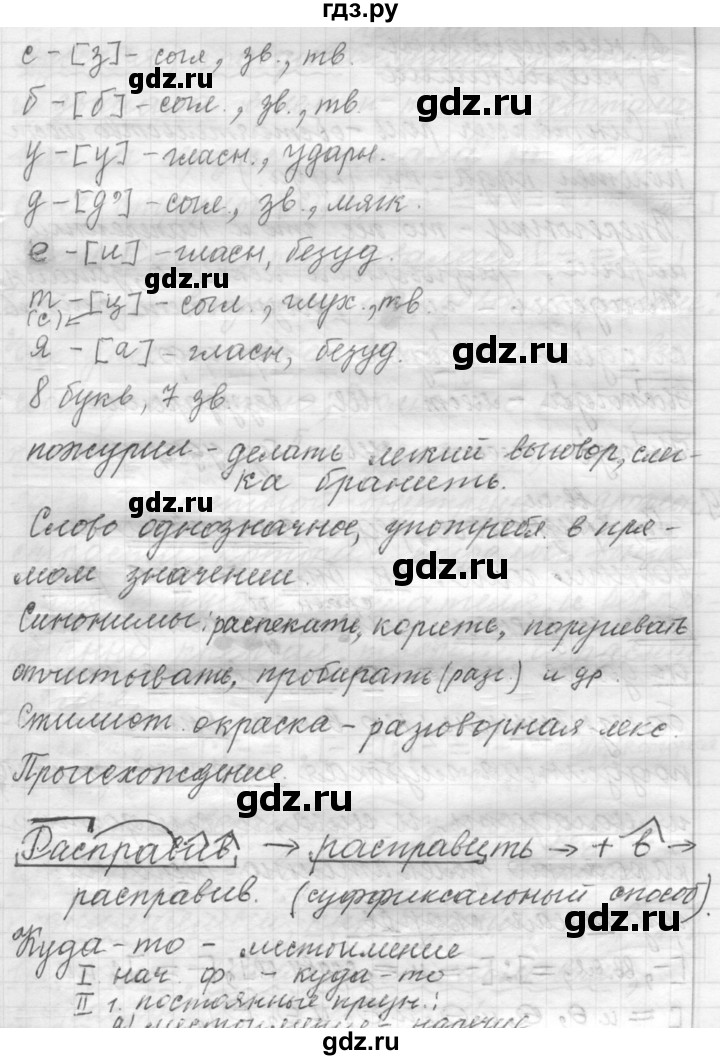 гдз.ру
с - [з] - согл., зв., тв.
gdz.ru
б - [б] - согл., зв., тв.
gdz.ru
у - [у] - гласн., ударн.
д - [д'] - согл., зв., мягк.
е - [и] - гласн, безуд.
gdz.ru
т - [ц] - согл., глух., тв.
(с)
я - [а] - гласн, безуд.
gdz.ru
8 букв, 7 зв.
пожурил - делать легкий выговор, слег-
ка бранить.
gdz.ru
Слово однозначное, употребл. в пря-
мом значении.
gdz.ru
Синонимы: распекать, корить,
отчитывать, пробирать (разг.) и др.
Стилист. окраска - разговорная лекс.
Происхождение.
gdz.ru
Расправив → расправить → + в →
расправив. (суффиксальный способ).
gdz.ru
Куда-то - местоимение
I. нач. ф. - куда-то
II г. постоянные призн.:
gdz.ru
а) местоимение - наречие